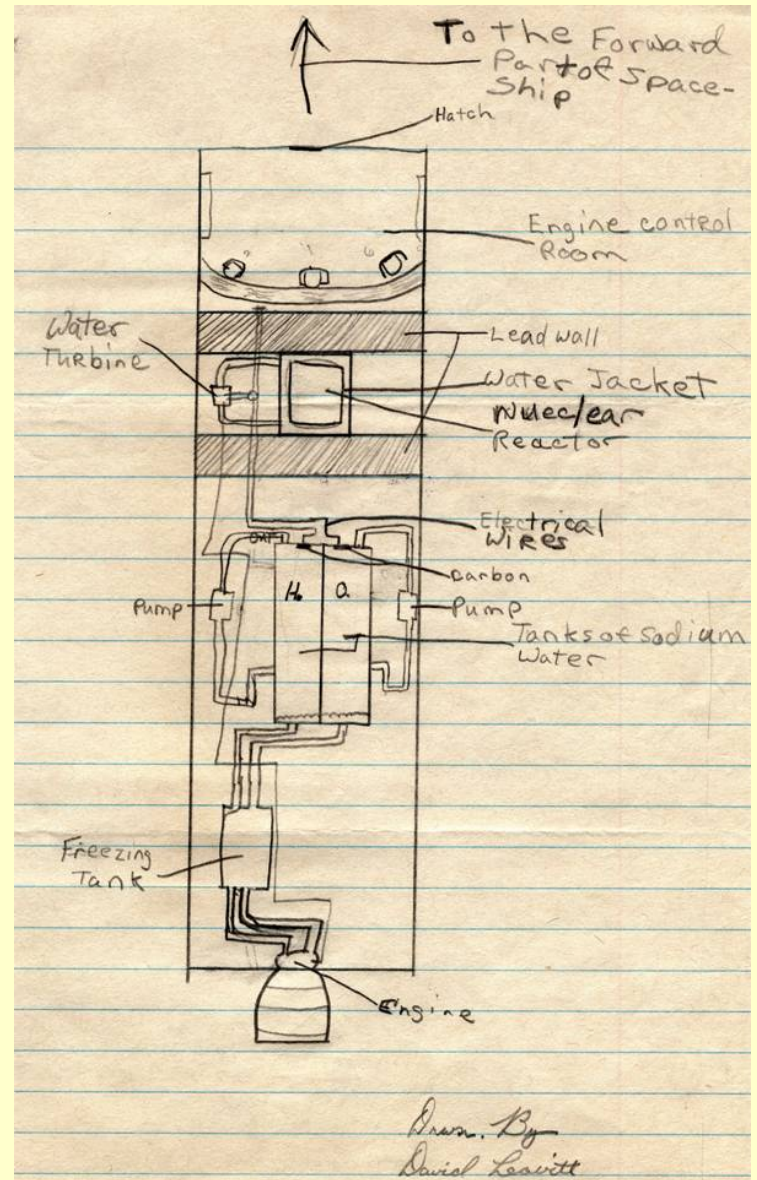 To the Forward
Part of Space-
Ship
Hatch
Engine control
Room
Water
Turbine
Lead wall
Water Jacket
Nueclear
Reactor
Electrical
Wires
carbon
H
O
Pump
Pump
Tanks of Sodium
Water
Freezing
Tank
Engine
Drawn By
David Leavitt